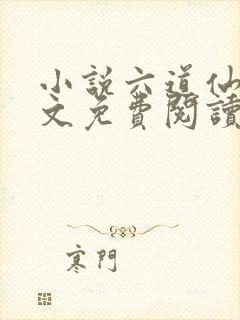 小說六道仙
文免費閱讀
寒門